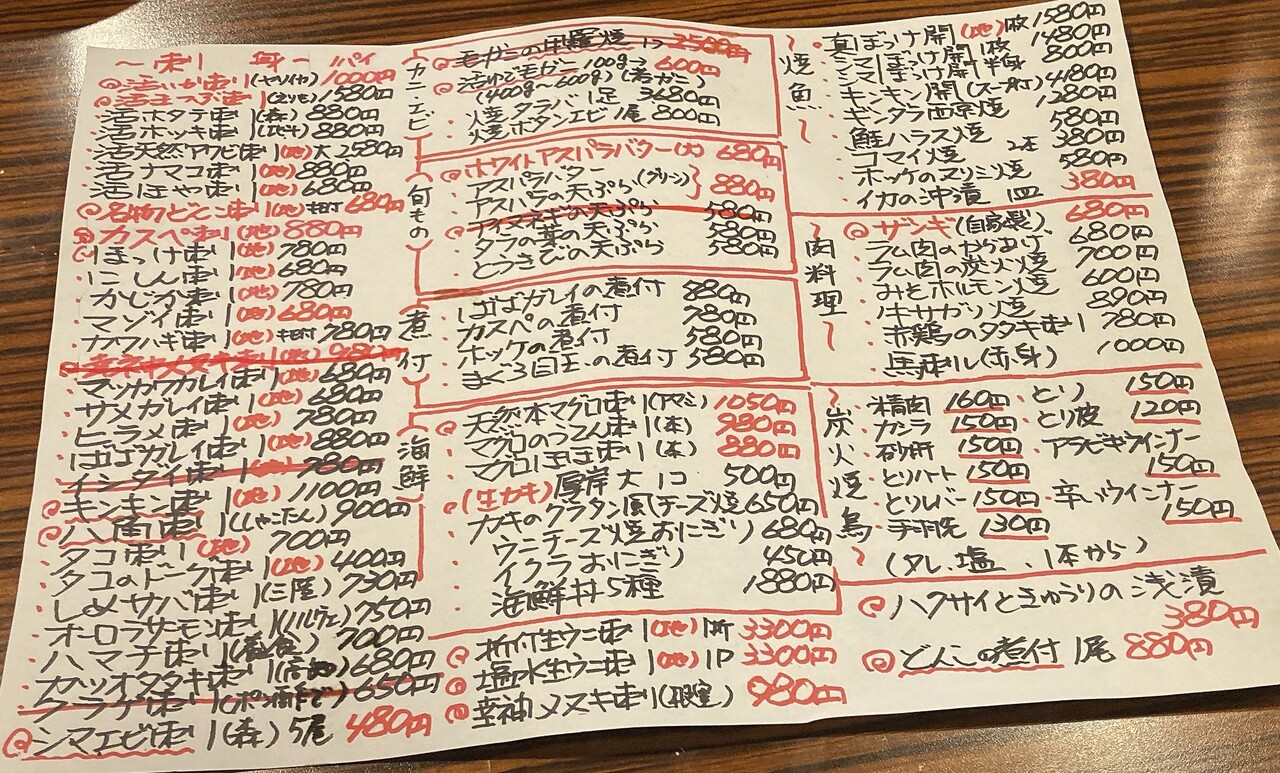 〜刺 身〜 パイ
活いか刺(ヤリイカ) 1000円
活まつぶ刺(えりも) 1580円
活ホタテ刺(森) 880円
活ホッキ刺 880円
活天然アワビ刺(地)大 2580円
活ナマコ刺(地) 880円
活ほや刺(地) 680円
名物どんこ刺(地)キモ付 680円
カスベ刺(地) 880円
ほっけ刺(地) 780円
にしん刺(地) 680円
かじか刺(地) 780円
マゾイ刺(地) 680円
カワハギ刺(地)キモ付 780円
マツカワカレイ刺(地) 680円
サメガレイ刺(地) 680円
ヒラメ刺(地) 780円
ばばガレイ刺(地) 880円
イシダイ刺 780円
キンキン刺(地) 1100円
八角刺(しゃこたん) 900円
タコ刺(地) 700円
タコのトーガ刺(地) 400円
しめサバ刺(三陸) 730円
オーロラサーモン刺(ノルウェー) 750円
ハマチ刺(養食) 700円
カツオタタキ刺(高知) 680円
クラゲ刺(ポン酢など) 650円
シマエビ刺(森) 5尾 480円
カニ・エビ
毛ガニの甲羅焼 1つ 2580円
活ゆで毛ガニ 100g 600円
(400g〜600g)(若ガニ)
焼タラバ 1足 3680円
焼ボタンエビ 1尾 800円
旬もの
ホワイトアスパラバター(大) 680円
アスパラバター
アスパラの天ぷら(グリーン) 880円
の天ぷら 580円
タラの葉の天ぷら 580円
とうきびの天ぷら 580円
煮付
ばばガレイの煮付 880円
カスベの煮付 780円
ホッケの煮付 580円
まぐろ目玉の煮付 580円
海鮮
天然本マグロ刺(アカミ) 1050円
マグロのつてん刺(本) 980円
マグロほほ刺(本) 880円
(生カキ)厚岸 大 1コ 500円
カキのグラタン風チーズ焼 650円
ウニチーズ焼おにぎり 680円
イクラおにぎり 450円
海鮮丼5種 1880円
折付生ウニ刺(地)1折 3300円
塩水生ウニ刺(地)1P 3300円
幸神メヌキ刺(根室) 980円
焼魚
真ぼっけ開(地)1枚 1580円
シマぼっけ開 1枚 1480円
シマぼっけ開 半身 800円
キンキン開 4180円
ギンダラ西京焼 1280円
鮭ハラス焼 580円
コマイ焼 2本 380円
ホッケのスリミ焼 580円
イカの沖漬 1皿 380円
肉料理
ザンギ(自家製) 680円
ラム肉のからあげ 680円
ラム肉の炭火焼 700円
みそホルモン焼 600円
バキサガリ焼 890円
赤鶏のタタキ刺 780円
馬刺し(赤身) 1000円
炭火焼鳥
精肉 160円 ・とり 150円
カシラ 150円 ・とり皮 120円
砂肝 150円 ・アラビキウインナー 150円
とりハート 150円
とりレバー 150円 ・辛いウインナー 150円
手羽先 130円
(タレ、塩、1本から)
ハクサイときゅうりの浅漬 380円
どんこの煮付 1尾 880円